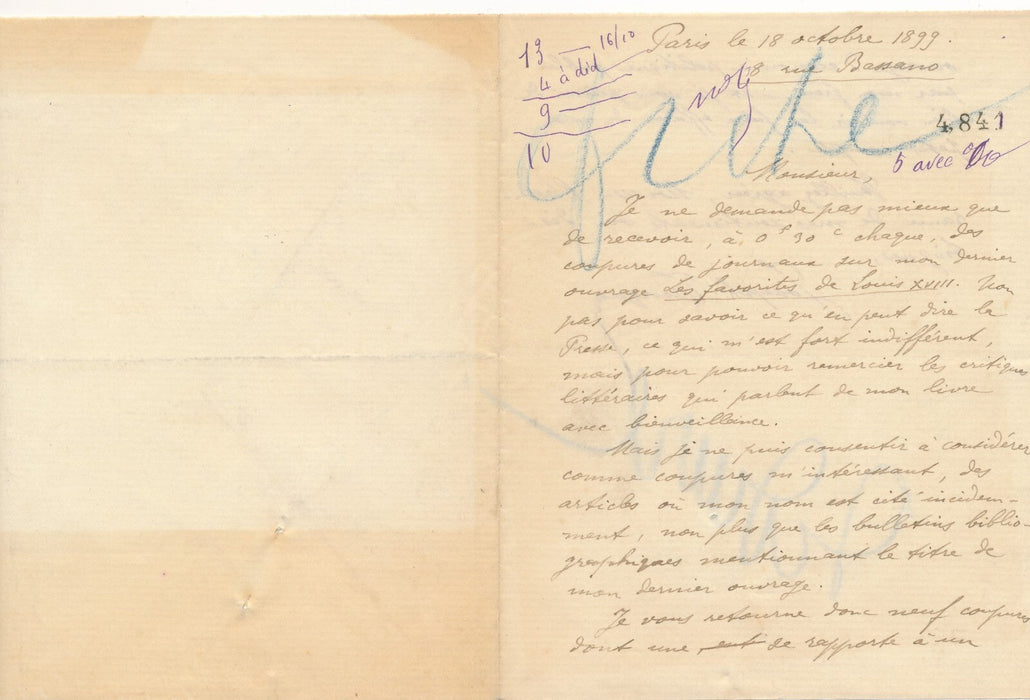 13 — 16/10
4 à did
9
10
Paris le 18 octobre 1899.
8 rue Bassano
noté
4.841
5 avec
Monsieur,
Je ne demande pas mieux que
de recevoir, à 0 f 30 c chaque, des
coupures de journaux sur mon dernier
ouvrage Les favorites de Louis XVIII. Non
pas pour savoir ce qu'en peut dire la
Presse, ce qui m'est fort indifférent,
mais pour pouvoir remercier les critiques
littéraires qui parlent de mon livre
avec bienveillance.
Mais je ne puis consentir à considérer
comme coupures m'intéressant, des
articles où mon nom est cité incidem-
ment, non plus que les bulletins biblio-
graphiques mentionnant le titre de
mon dernier ouvrage.
Je vous retourne donc neuf coupures
dont une se rapporte à un